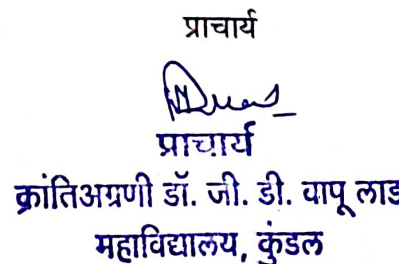 प्राचार्य
प्राचार्य
क्रांतिअग्रणी डॉ. जी. डी. बापू लाड
महाविद्यालय, कुंडल